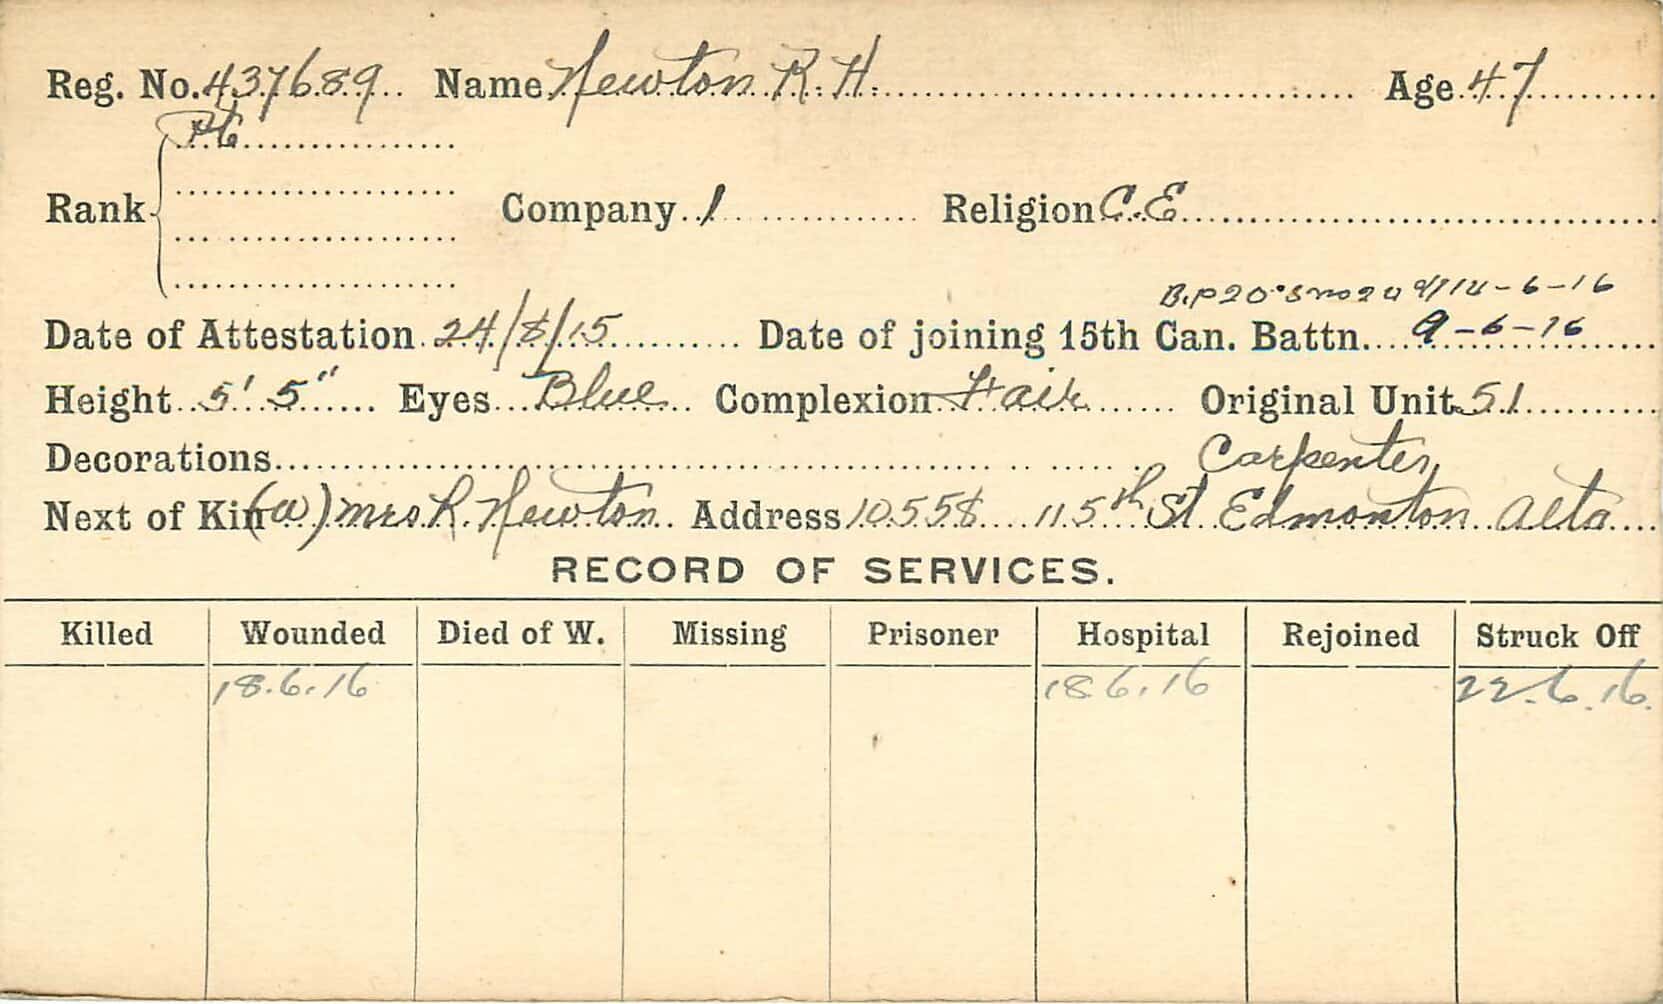 Reg. No. 437689 Name Newton R. H. Age 47
Pte
Rank Company 1 Religion C. E
14-6-16
Date of Attestation 24/8/15 Date of joining 15th Can. Battn. 9-6-16
Height 5' 5" Eyes Blue Complexion Fair Original Unit 51
Decorations Carpenter
Next of Kin (w) Mrs R. Newton Address 10558 115th St. Edmonton Alta
RECORD OF SERVICES.
Killed Wounded Died of W. Missing Prisoner Hospital Rejoined Struck Off
18.6.16 18 6.16 22.6.16.